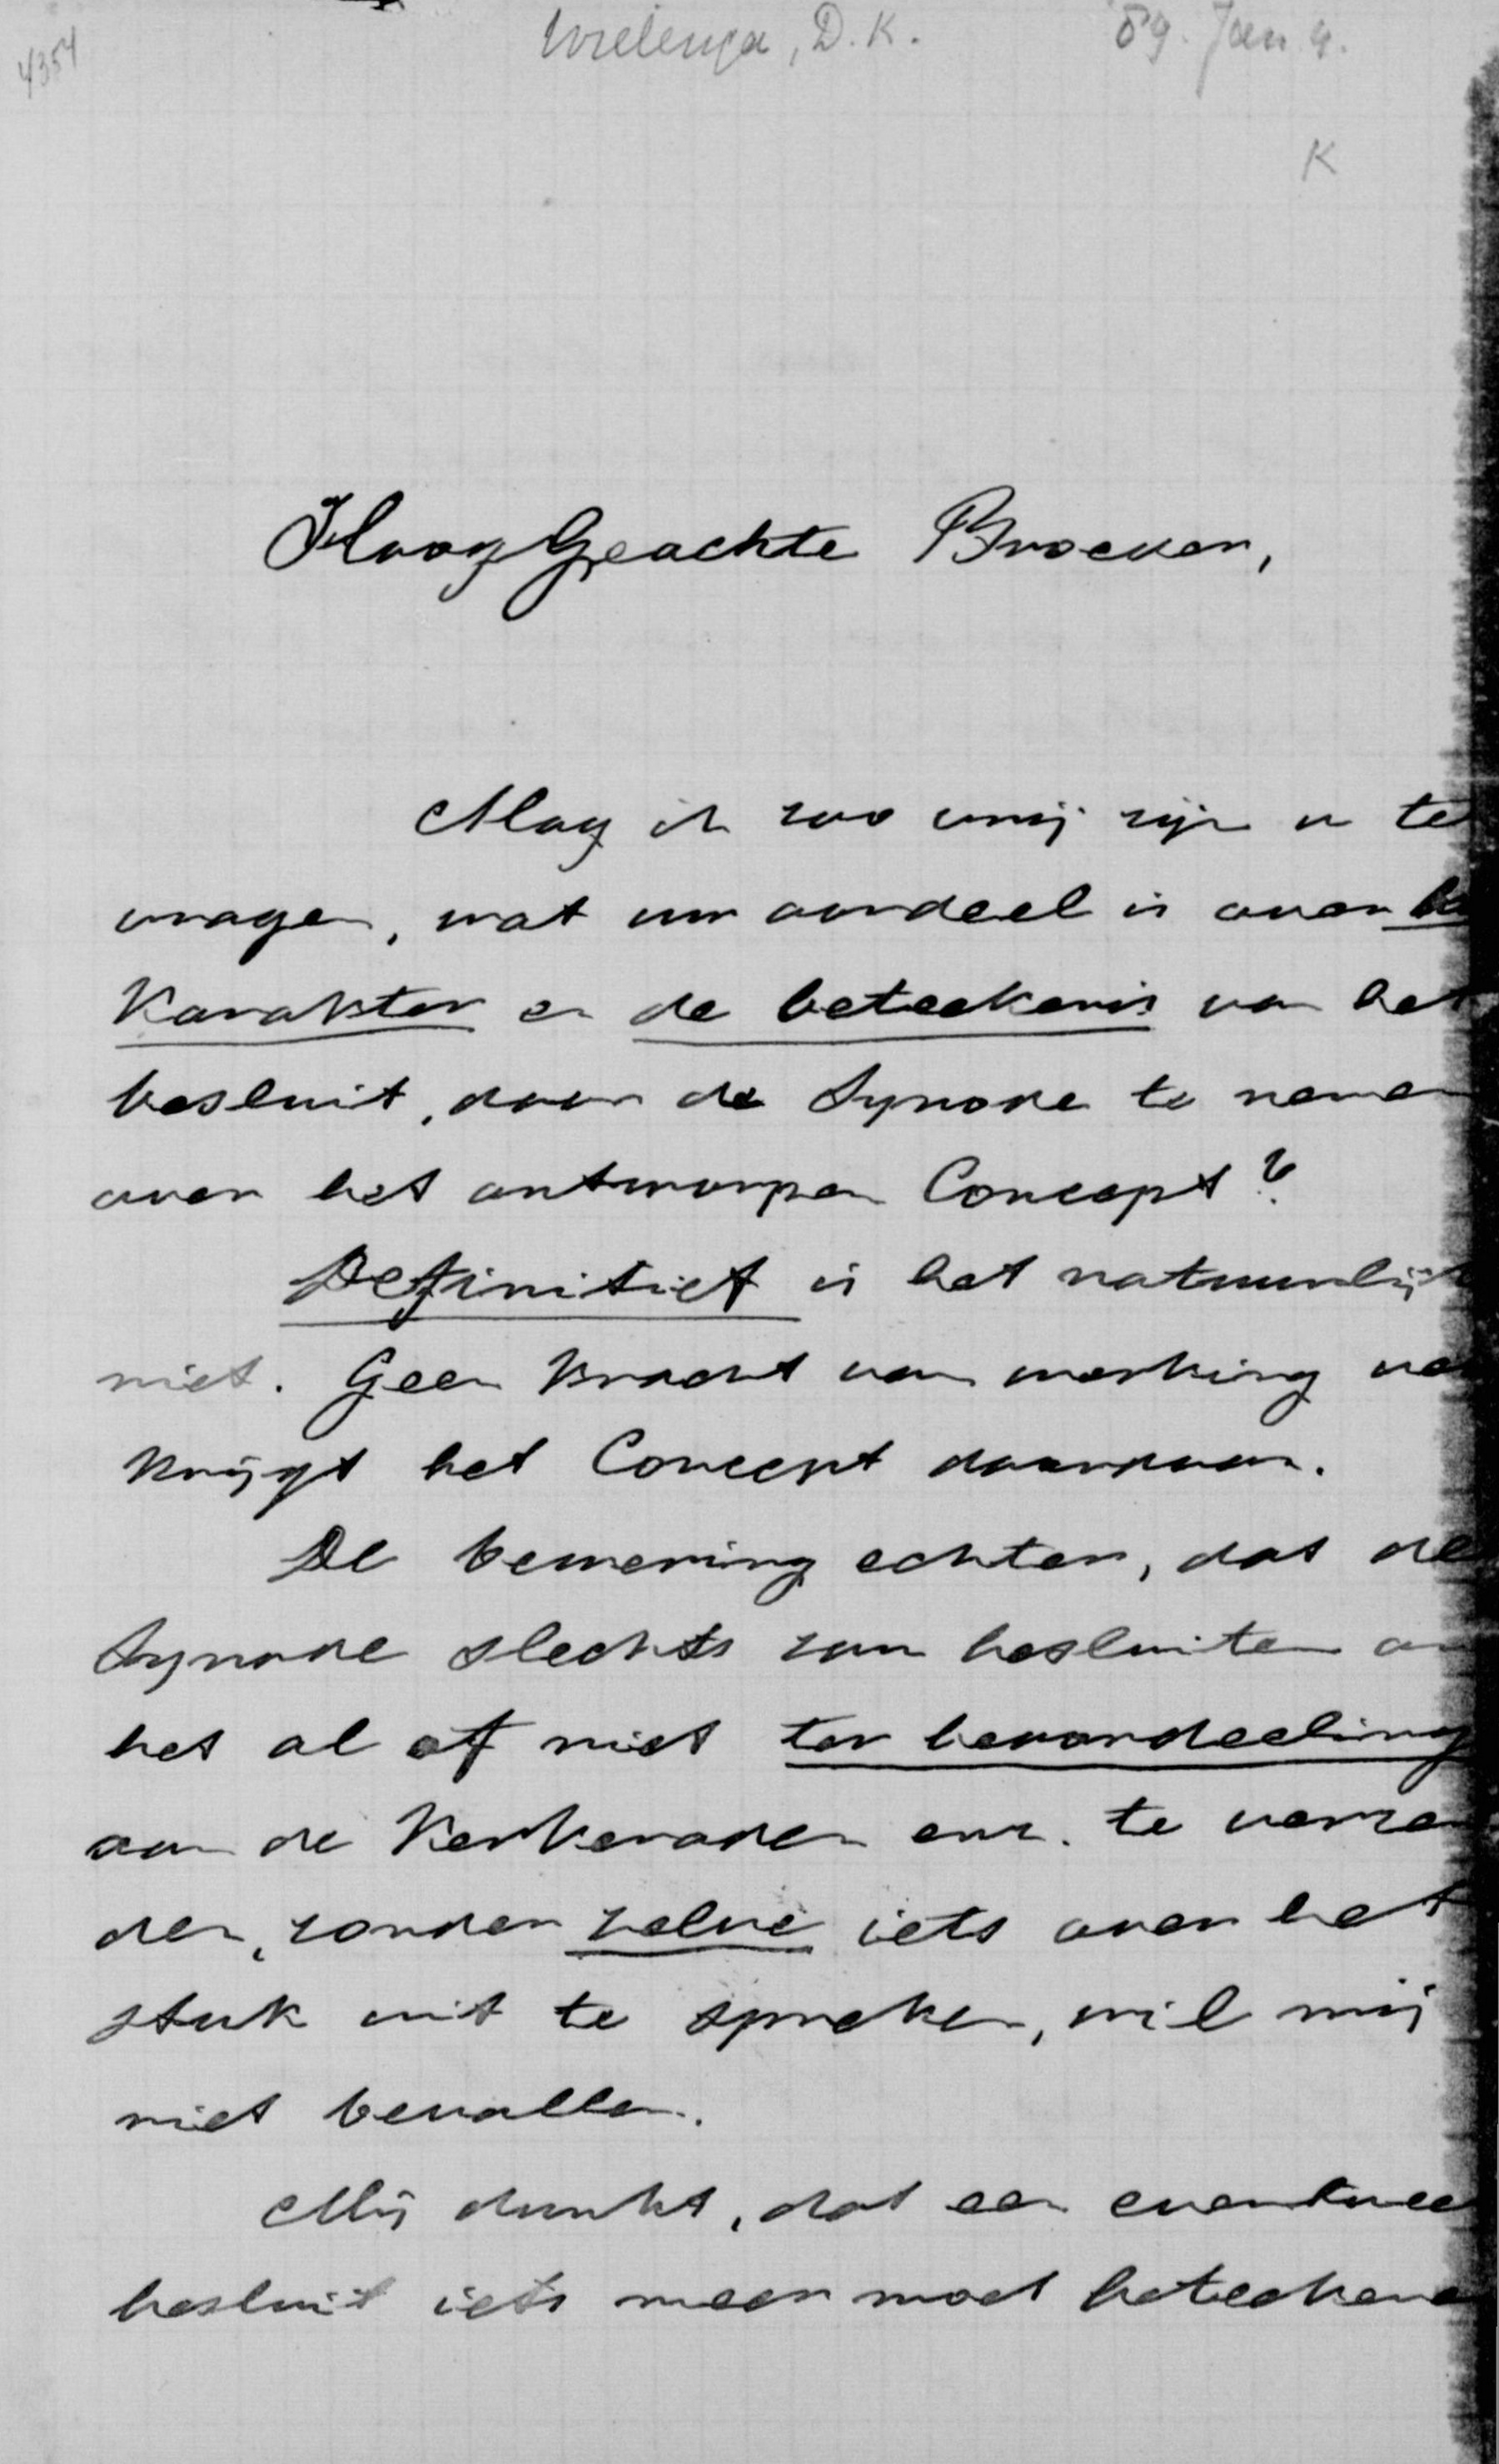 4354
Wielenga, D.K. '89. Jan 4.
K
HoogGeachte Broeder,
Mag ik zoo vrij zijn u te
vragen, wat uw oordeel is over
Karakter en de beteekenis van het
besluit, door de Synode te nemen
over het ontworpen Concept?
Definitief is het natuurlijk
niet. Geen kracht van werking
krijgt het Concept daardoor.
De bewering echter, dat de
Synode slechts zou besluiten om
het al of niet ter beoordeeling
aan de Kerkeraden enz. te verzen
den, zonder zelve iets over het
stuk uit te spreken, wil mij
niet bevallen.
Mij dunkt, dat een eventueel
besluit iets meer moet beteekenen